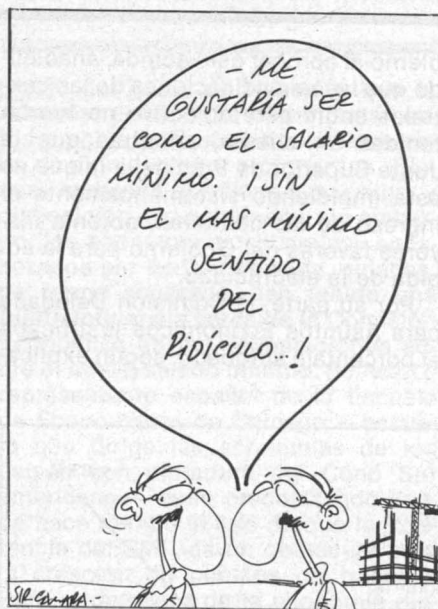 - ME
GUSTARÍA SER
COMO EL SALARIO
MÍNIMO. ¡ SIN
EL MAS MÍNIMO
SENTIDO
DEL
RIDICULO..!
SIR CÁMARA.